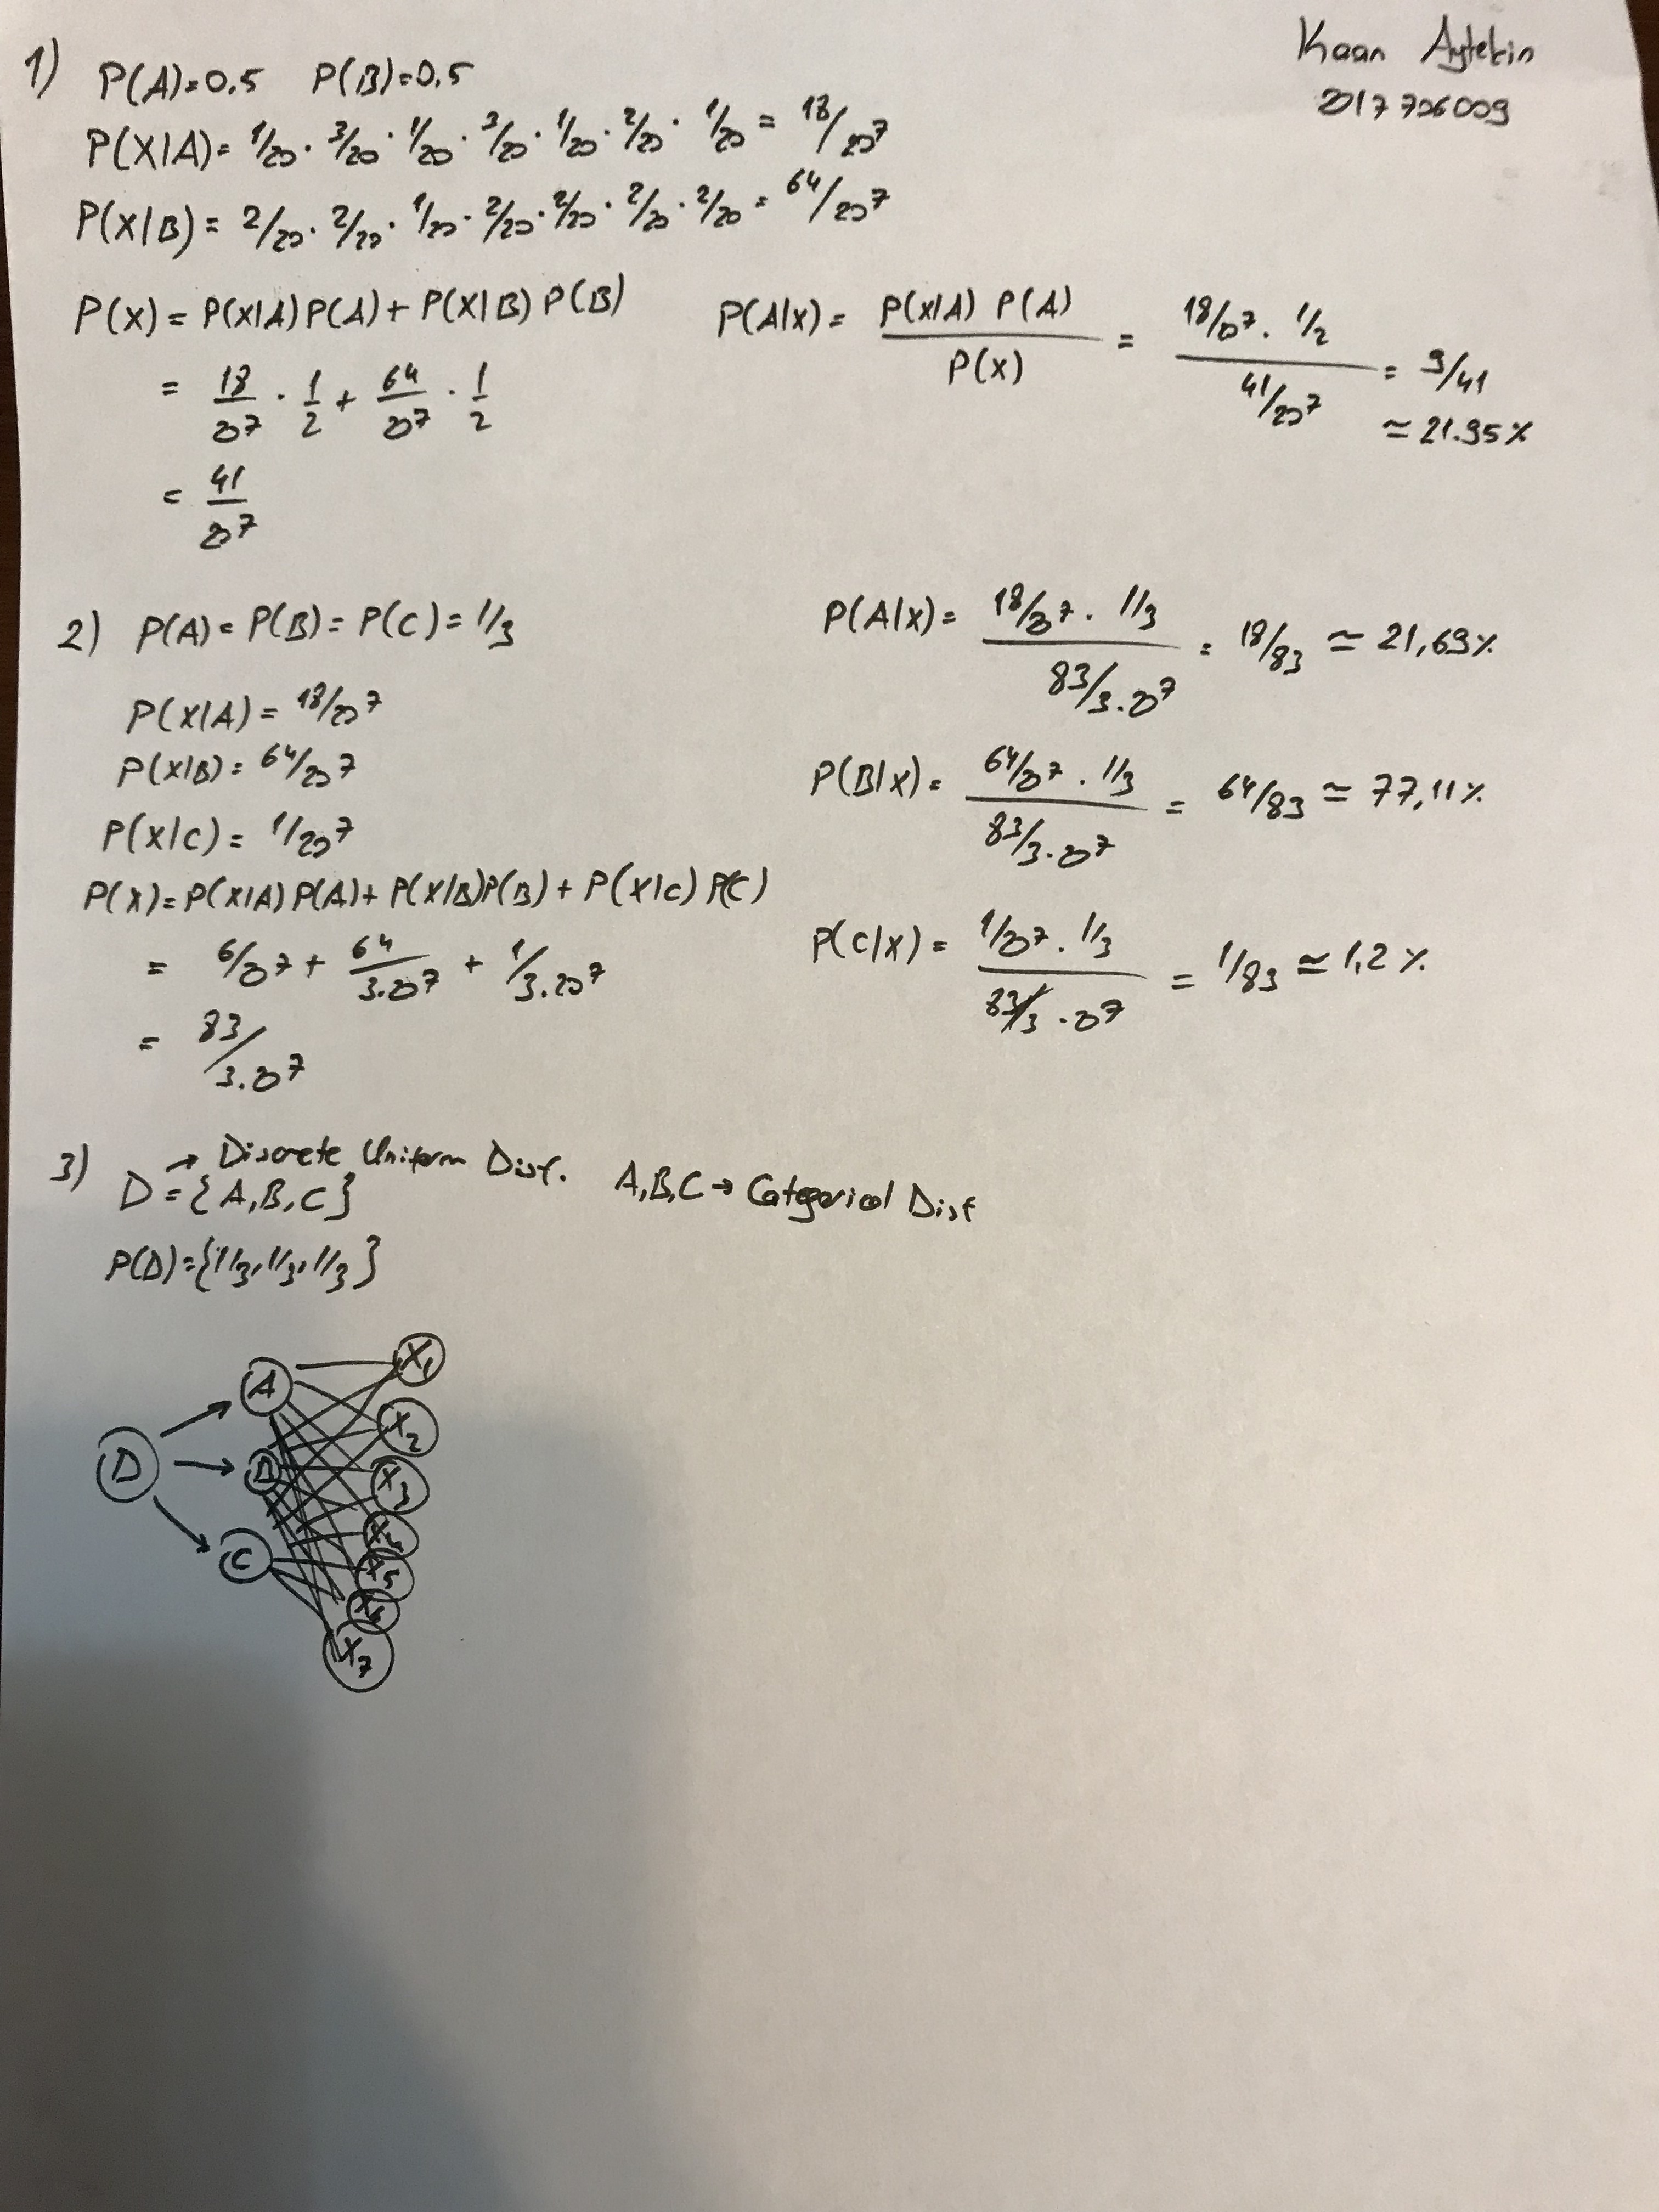 Kaan Aytekin
2017706009
1) P(A)=0.5 P(B)=0.5
P(X|A)= 1/20 . 3/20 . 1/20 . 3/20 . 1/20 . 2/20 . 1/20 = 18/20^7
P(X|B)= 2/20 . 2/20 . 1/20 . 2/20 . 2/20 . 2/20 . 2/20 = 64/20^7
P(X) = P(X|A)P(A)+ P(X|B) P(B)
= 18/20^7 . 1/2 + 64/20^7 . 1/2
= 41/20^7
P(A|X)= P(X|A) P(A) / P(X) = 18/20^7 . 1/2 / 41/20^7 = 9/41
≃ 21.95%
2) P(A)= P(B)= P(C)= 1/3
P(X|A)= 18/20^7
P(X|B)= 64/20^7
P(X|C)= 1/20^7
P(X)= P(X|A)P(A)+ P(X|B)P(B)+ P(X|C)P(C)
= 6/20^7 + 64/3.20^7 + 1/3.20^7
= 83/3.20^7
P(A|X)= 18/20^7 . 1/3 / 83/3.20^7 = 18/83 ≃ 21,69%
P(B|X)= 64/20^7 . 1/3 / 83/3.20^7 = 64/83 ≃ 77,11%
P(C|X)= 1/20^7 . 1/3 / 83/3.20^7 = 1/83 ≃ 1,2%
3) → Discrete Uniform Dist. A,B,C → Categorical Dist
D={A,B,C}
P(D)={1/3,1/3,1/3}
D
A
B
C
X1
X2
X3
X4
X5
X6
X7